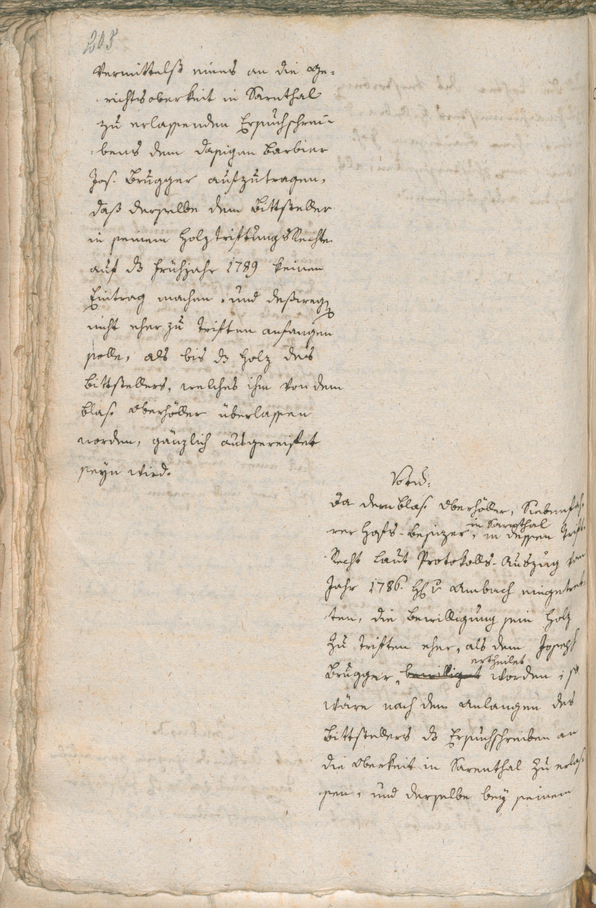 205
Vermittelß eines an die Ge-
richtsoberkeit in Sarnthal
zu erlassenden Ersuchschrei-
bens dem dasigen Barbier
Jos. Brugger aufzutragen,
daß derselbe dem Bittsteller
in seinem Holztriftungs Rechte
auf ds Frühjahr 1789 keinen
Eintrag machen, und deßweg
nicht eher zu triften anfangen
solle, als bis ds Holz des
Bittstellers, welches ihm von dem
Blas. Oberhöller überlassen
worden, gänzlich ausgereistet
seyn wird.
Da dem Blas. Oberhöller,
rer Hofs-Besizer in Sarnthal, in dessen Trift-
Recht laut Protokolls-Auszug vom
Jahr 1786 H v Ambach eingetret-
ten, die Bewilligung sein Holz
zu triften eher, als dem Joseph
Brugger bewilliget ertheilet worden; so
wäre nach dem Anlangen des
Bittstellers ds Ersuchschreiben an
die Oberkeit in Sarenthal zu erlas-
sen, und derselbe bey seinem